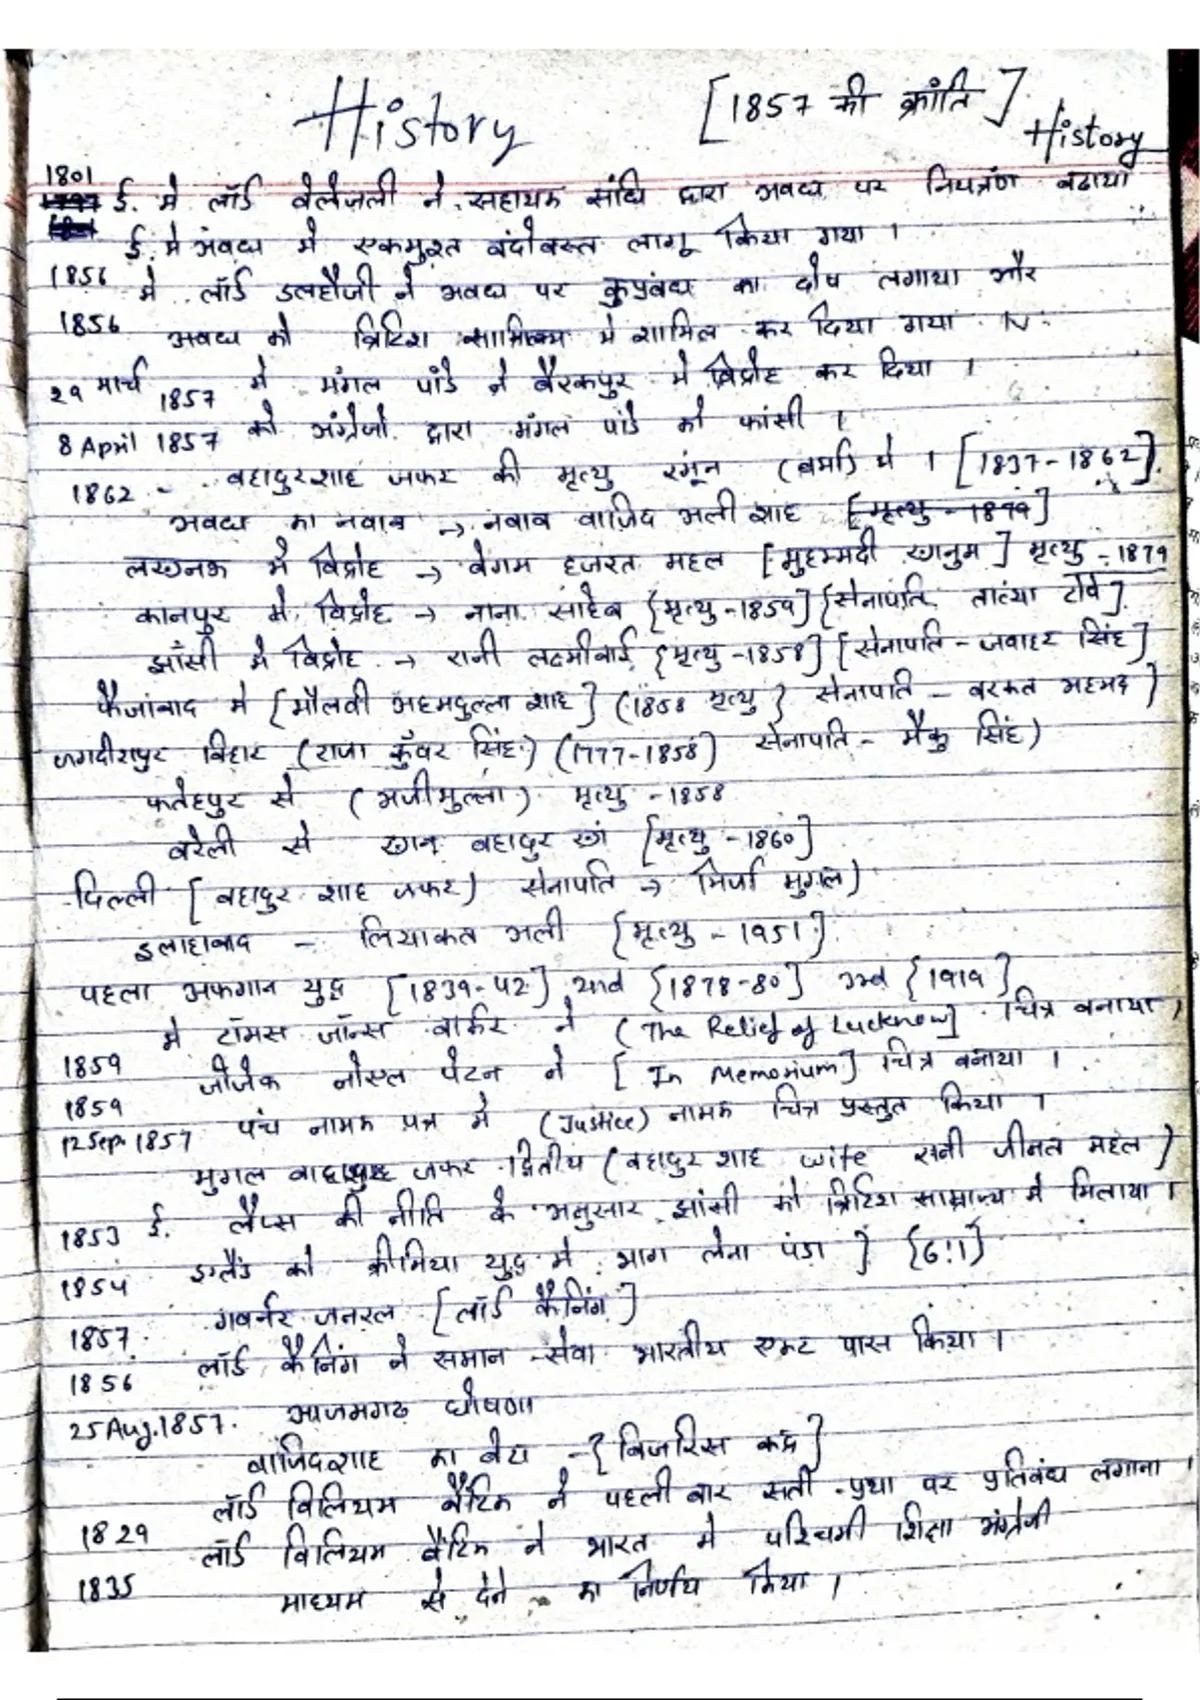 History [1857 की क्रांति] History
1801 ई. मे लॉर्ड वेलेजली ने सहायक संधि द्वारा अवध पर नियंत्रण बढाया
ई. मे अवध मे एकमुश्त बंदोबस्त लागू किया गया ।
1856 मे लॉर्ड डलहौजी ने अवध पर कुप्रबंध का दोष लगाया और
1856 अवध को ब्रिटिश साम्रिज्य मे शामिल कर दिया गया
29 मार्च 1857 मे मंगल पांडे ने बैरकपुर मे विद्रोह कर दिया ।
8 April 1857 को अंग्रेजो द्वारा मंगल पांडे को फांसी ।
1862 - बहादुरशाह जफर की मृत्यु रंगून (बर्मा) मे । [1837-1862].
अवध का नवाब → नवाब वाजिद अली शाह [मृत्यु - 1879]
लखनऊ मे विद्रोह → बेगम हजरत महल [मुहम्मदी खानुम] मृत्यु - 1879
कानपुर मे विद्रोह → नाना साहेब {मृत्यु-1859] {सेनापति तात्या टोपे].
झाँसी मे विद्रोह → रानी लक्ष्मीबाई {मृत्यु-1858] [सेनापति - जवाहर सिंह]
फैजाबाद मे [मौलवी अहमदुल्ला शाह] (1858 मृत्यु} सेनापति - बरकत अहमद)
जगदीशपुर बिहार (राजा कुँवर सिंह) (1777-1858) सेनापति - मैकु सिंह)
फतेहपुर से (अजीमुल्ला) मृत्यु - 1858
बरेली से खान बहादुर खां [मृत्यु - 1860]
दिल्ली [बहादुर शाह जफर) सेनापति → मिर्जा मुगल)
इलाहाबाद - लियाकत अली {मृत्यु - 1951}
पहला अफगान युद्ध [1839-42] {1878-80] {1919]
1859 मे टॉमस जॉन्स बार्कर ने (The Relief of Lucknow] चित्र बनाया ।
1859 जोजेफ नोएल पेटन ने [In Memorium] चित्र बनाया ।
12 Sep 1857 पंच नामक पत्र मे (Justice) नामक चित्र प्रस्तुत किया ।
मुगल जफर द्वितीय (बहादुर शाह wife रानी जीनत महल)
1853 ई. लैप्स की नीति के अनुसार झांसी को ब्रिटिश साम्राज्य मे मिलाया ।
1854 इग्लैंड को क्रीमिया युद्ध मे भाग लेना पंडा ] {6:1}
1857. गवर्नर जनरल [लॉर्ड कैनिंग]
1856 लॉर्ड कैनिंग ने समान सेवा भारतीय एक्ट पास किया ।
25 Aug. 1857. आजमगढ घोषणा
वाजिदशाह का बेटा - {बिजरिस कद्र}
1829 लॉर्ड विलियम बैंटिक ने पहली बार सती प्रथा पर प्रतिबंध लगाना ।
1835 लॉर्ड विलियम बैंटिक ने भारत मे पश्चिमी शिक्षा अंग्रेजी
माध्यम से देने का निर्णय किया ।